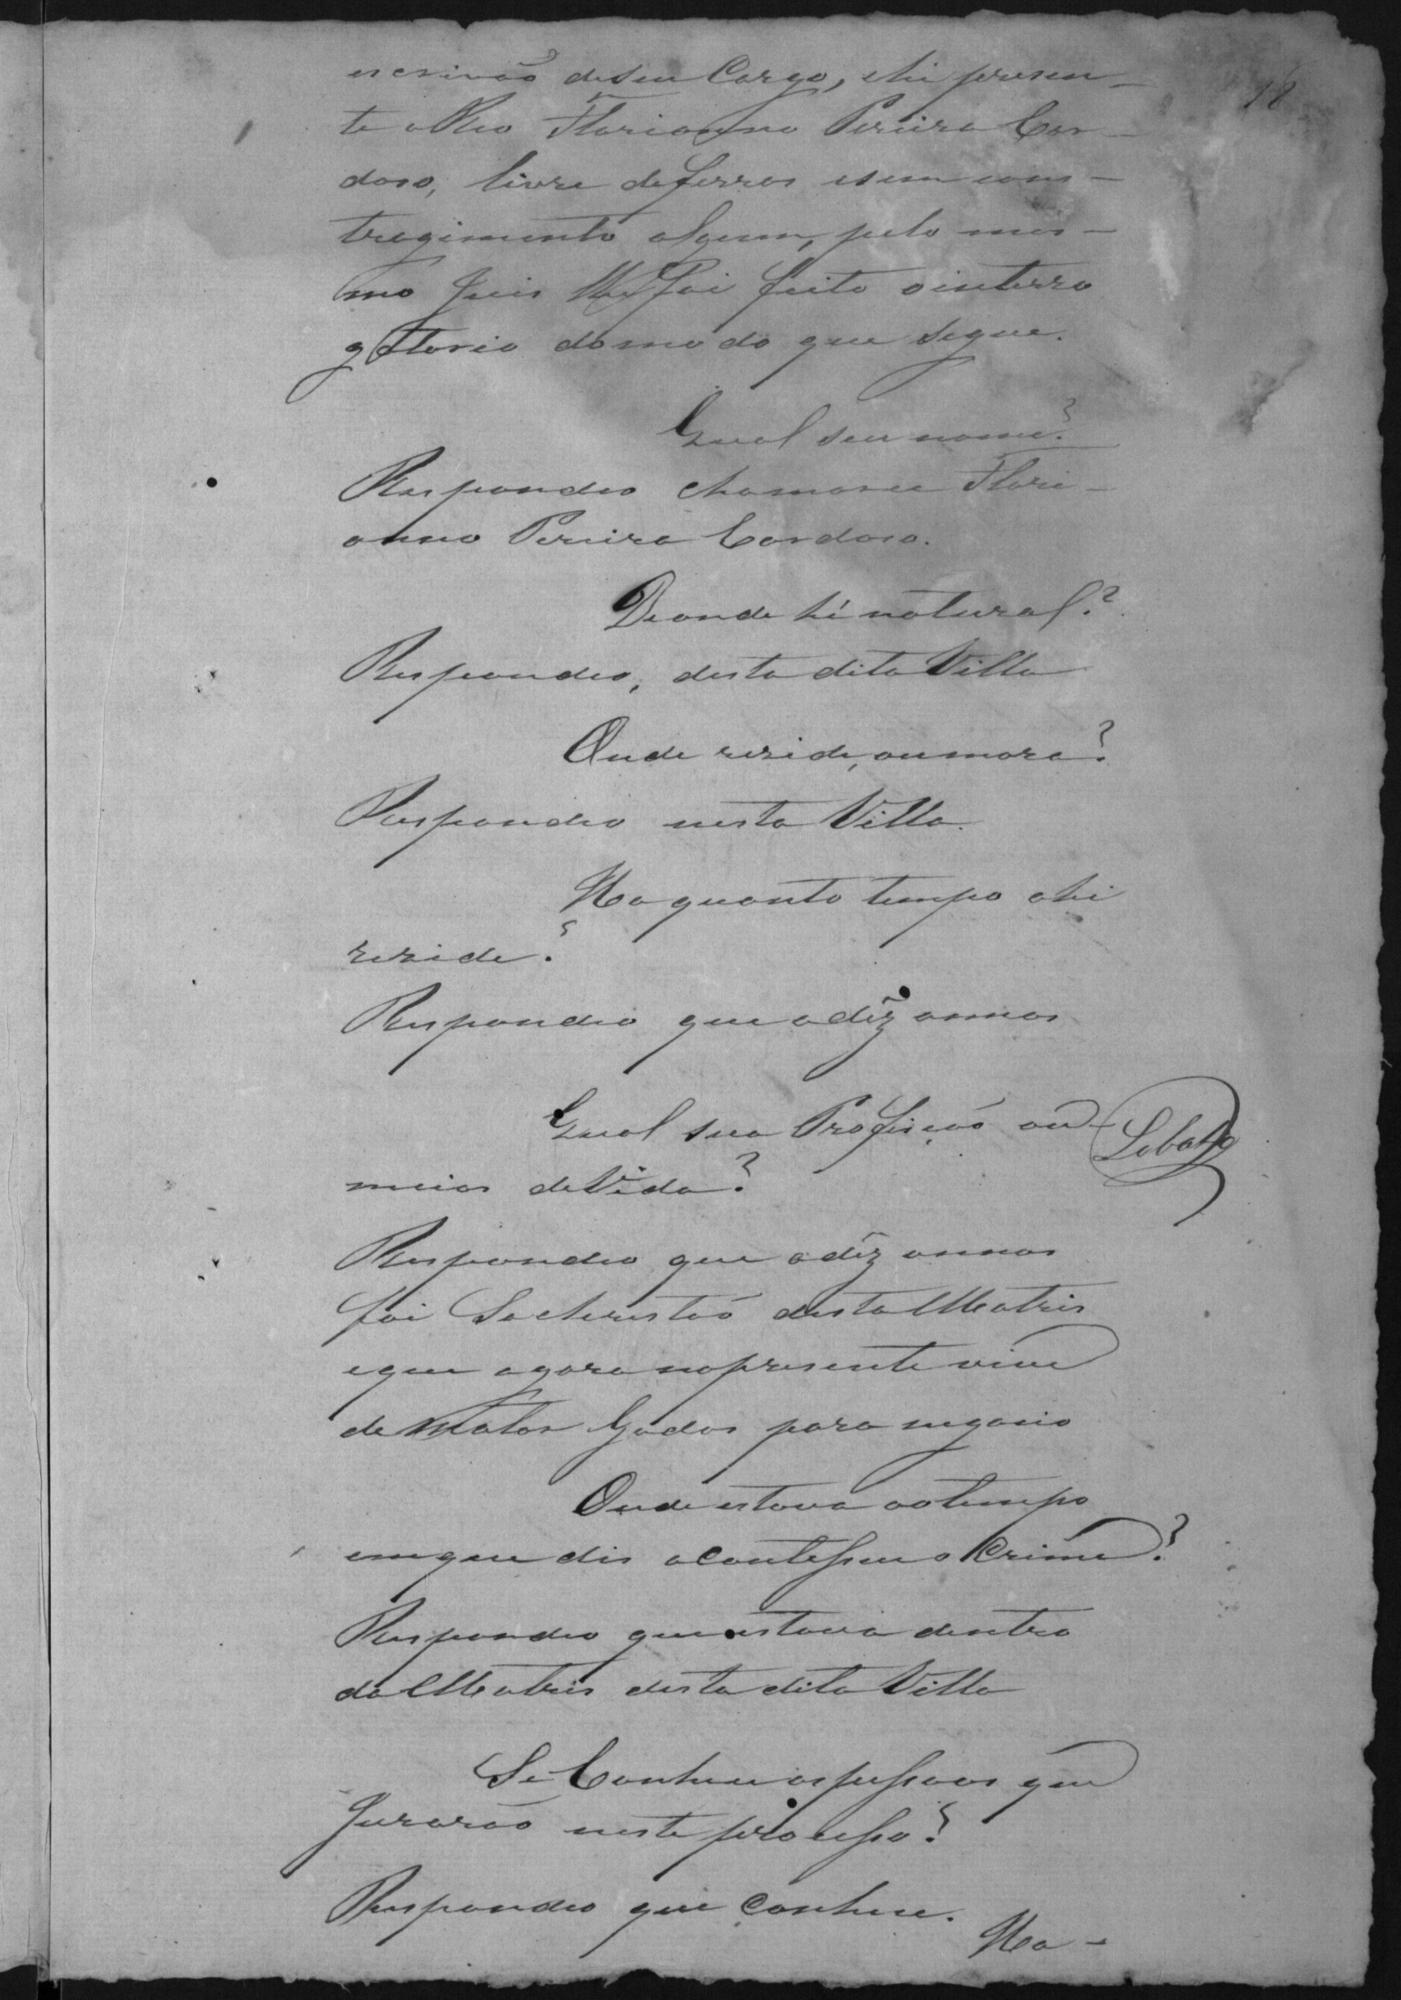 18
escrivaõ de seu Cargo, ahi presen-
te o Reo Florianno Pereira Car-
doso, livre de ferros e sem cons-
tragimento algum, pelo mes-
mo Juis lhe foi feito o interro
gatorio do modo que segue.
Qual seu nome?
Respondeo chamarce Flori-
anno Pereira Cardoso.
De onde hé natural?
Respondeo, desta dita Villa
Onde reside, ou mora?
Respondeo nesta Villa.
Ha quanto tempo ahi
reside?
Respondeo que a dêz annos
Qual sua Profiçaõ ou
Lobatto
meios de Vida?
Respondeo que a dêz annos
foi Sacheristaõ desta Matris
e que agora no presente vive
de Matar Gados para negocio
Onde estava ao tempo
em que dis aconteseu o Crime?
Respondeo que estava dentro
da Matris desta dita Villa
Se Conhece as pessoas que
Juraraõ neste processo?
Respondeo que Conhece.
Ha-